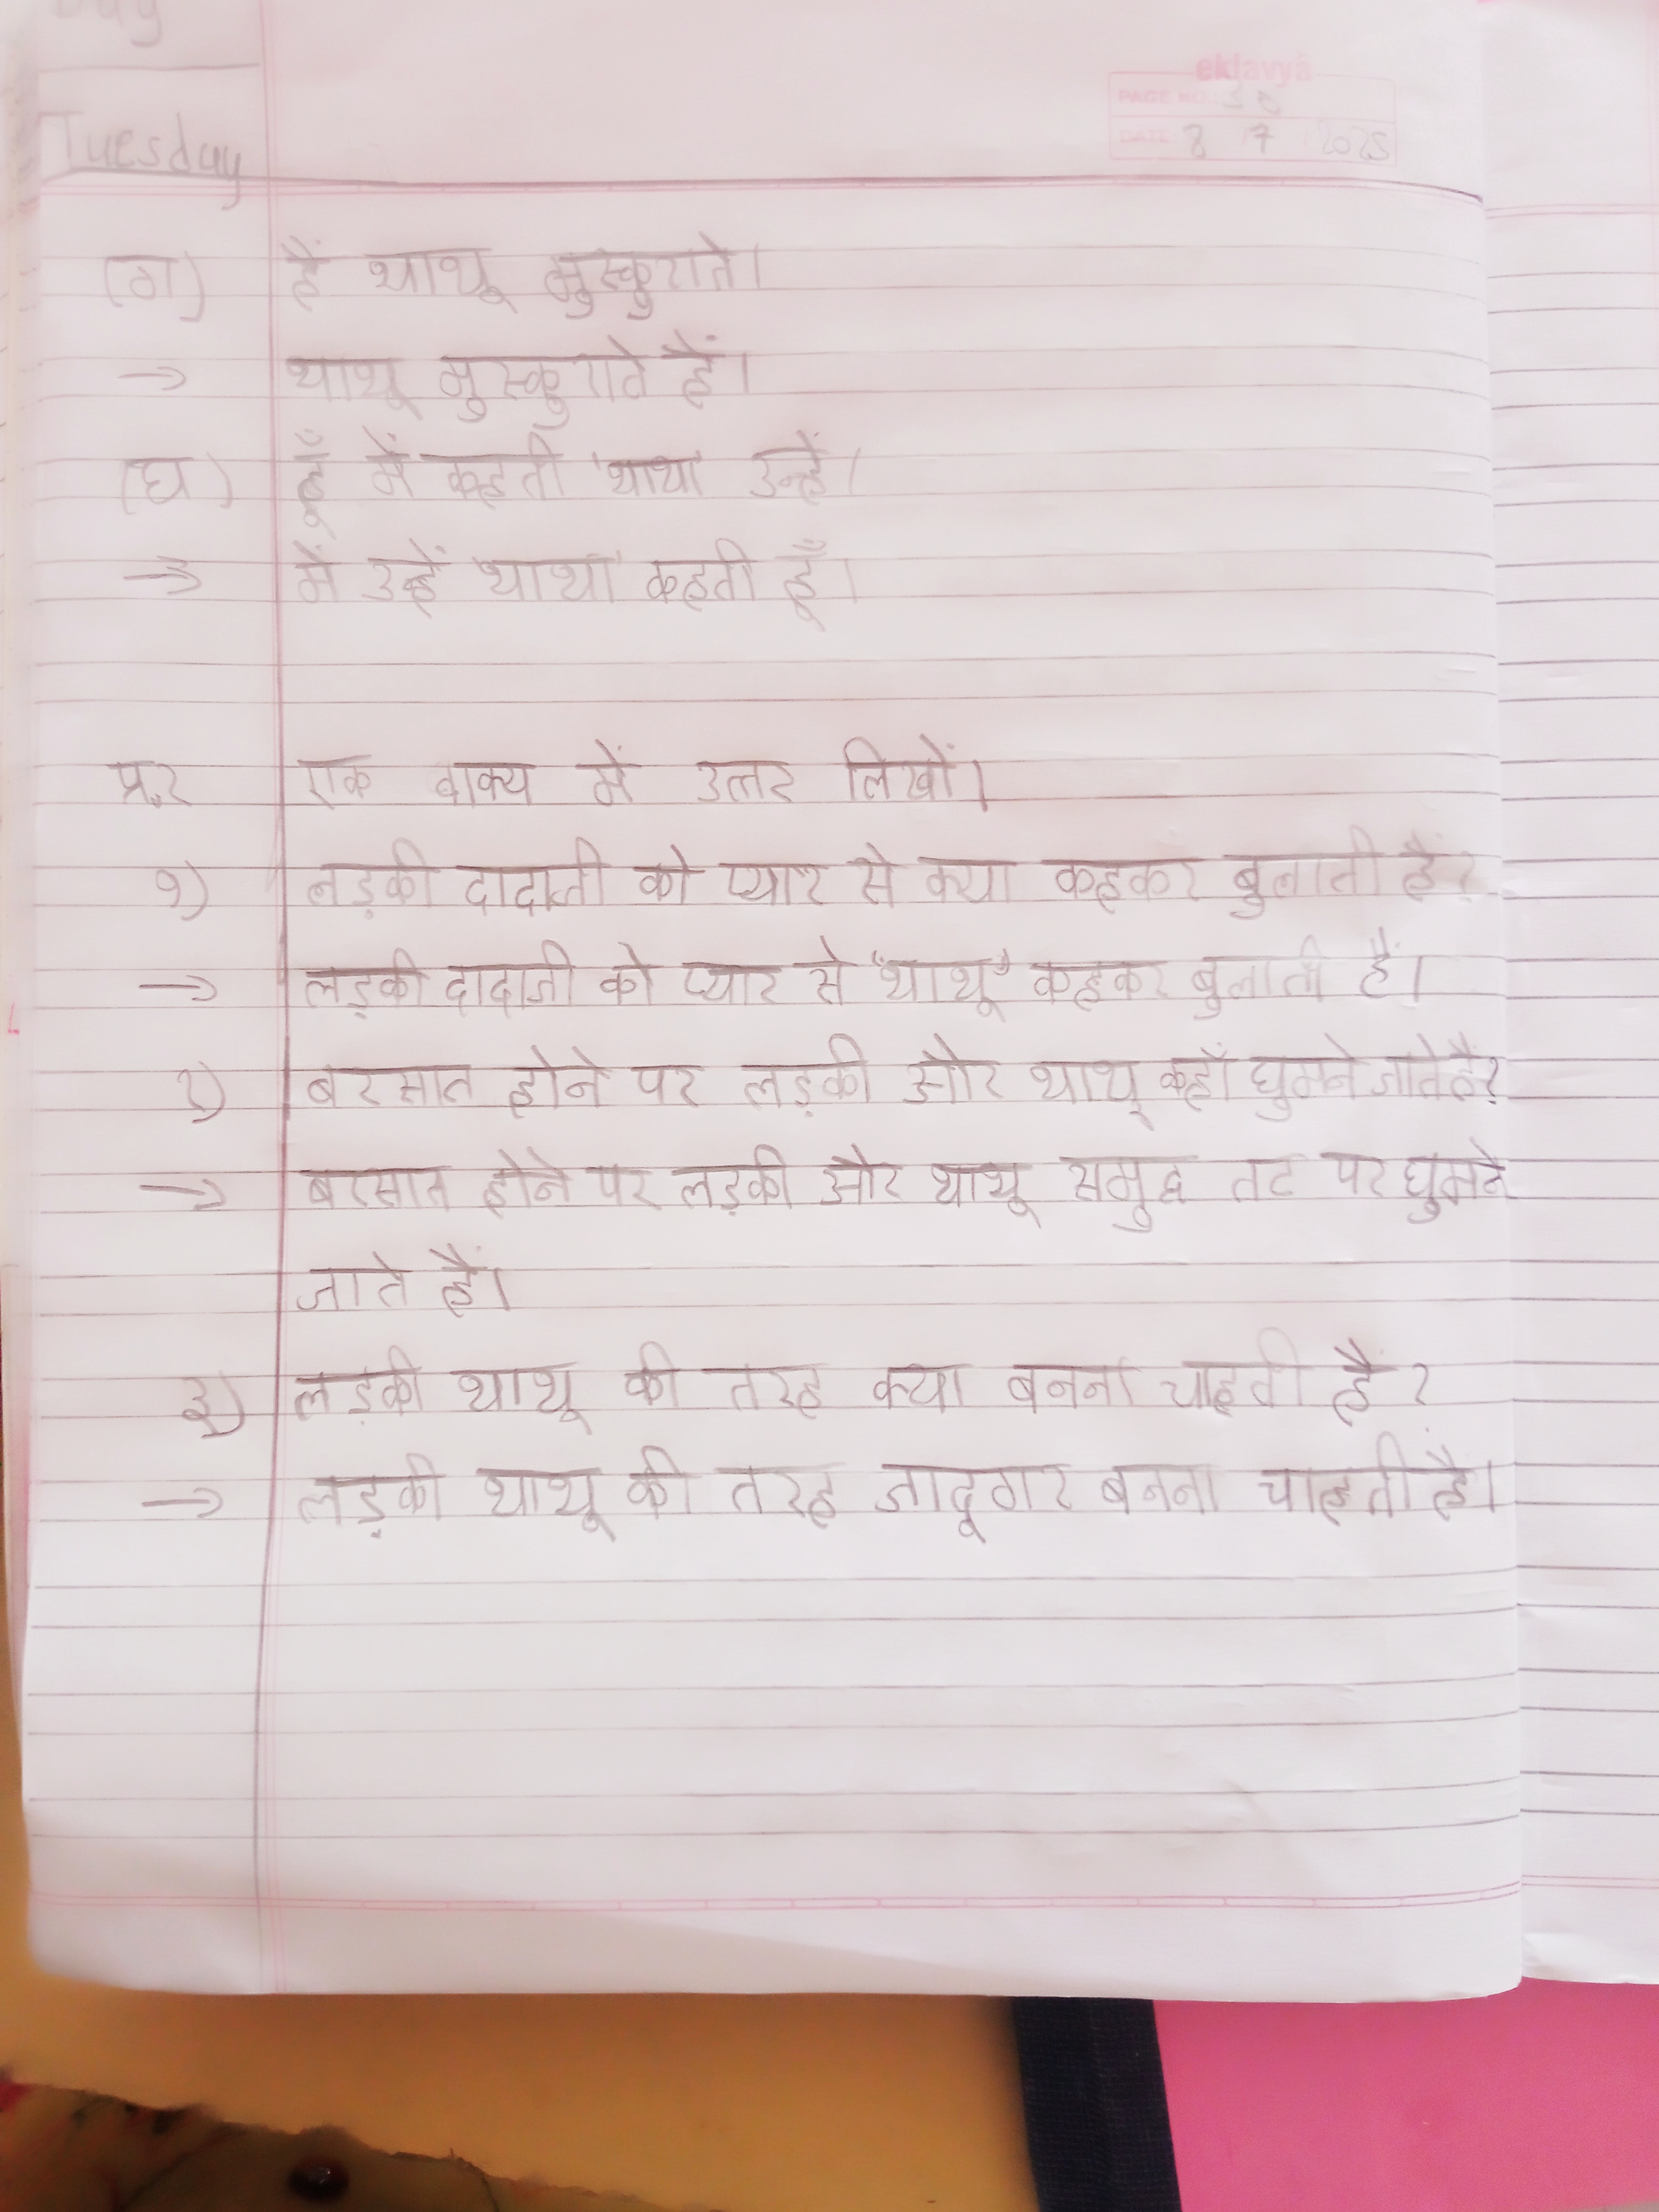 eklavya
PAGE NO.: 30
DATE 8 7 2025
Tuesday
(ग) हैं थाथू मुस्कुराते।
→ थाथू मुस्कुराते हैं।
(घ) हूँ में कहती 'थाथा' उन्हें।
→ में उन्हें 'थाथा' कहती हूँ।
प्र.२ एक वाक्य में उत्तर लिखों।
१) लड़की दादाजी को प्यार से क्या कहकर बुलाती हैं?
→ लड़की दादाजी को प्यार से "थाथू" कहकर बुलाती हैं।
२) बरसात होने पर लड़की और थाथू कहाँ घुमने जाते हैं?
→ बरसात होने पर लड़की और थाथू समुद्र तट पर घुमने
जाते हैं।
३) लड़की थाथू की तरह क्या बनना चाहती हैं?
→ लड़की थाथू की तरह जादूगर बनना चाहती हैं।